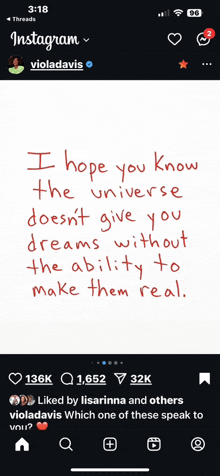 3:18
96
◀ Threads
Instagram
2
violadavis
I hope you know
the universe
doesn't give you
dreams without
the ability to
make them real.
136K 1,652 32K
Liked by lisarinna and others
violadavis Which one of these speak to
you? ❤️